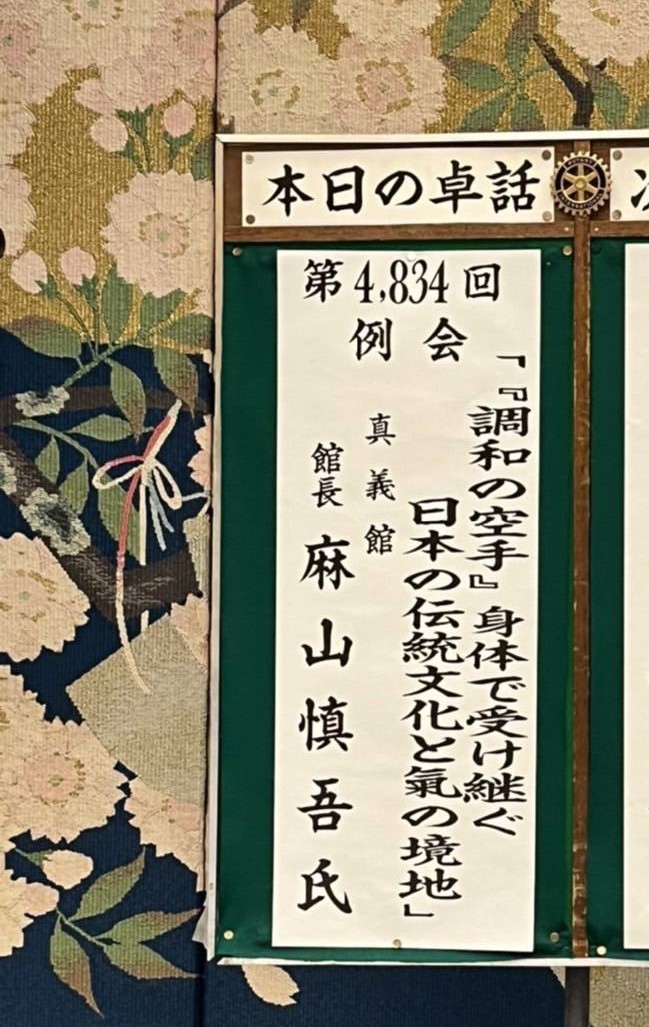 本日の卓話
第4,834回
例会
「『調和の空手』身体で受け継ぐ
日本の伝統文化と氣の境地」
真義館
館長 麻山慎吾氏